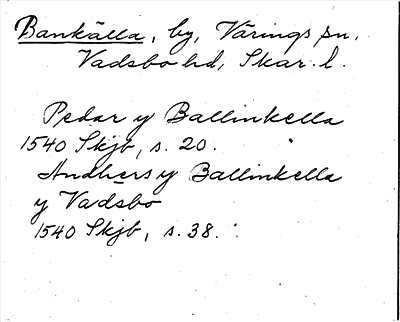 Bankälla, by, Värings sn.
Vadsbo hd, Skar. l.
Pedar y Ballinkella
1540 Skjb, s. 20.
Andhers y Ballinkella
y Vadsbo
1540 Skjb, s. 38.